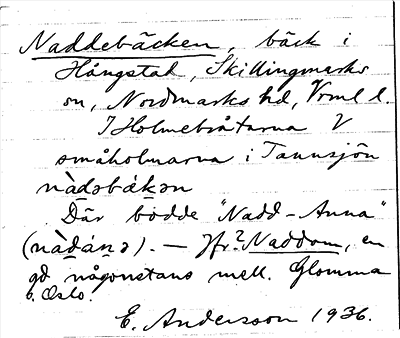 Naddebäcken, bäck i
Hångstad, Skillingmarks
sn, Nordmarks hd, Vrml l.
I Holmebråtarna V
småholmarna i Tannsjön
nàdəbákən
Där bodde "Nadd-Anna"
(nàdánə). — Jfr? Naddom, en
gd någonstans mell. Glomma
o. Oslo.
E. Andersson 1936.